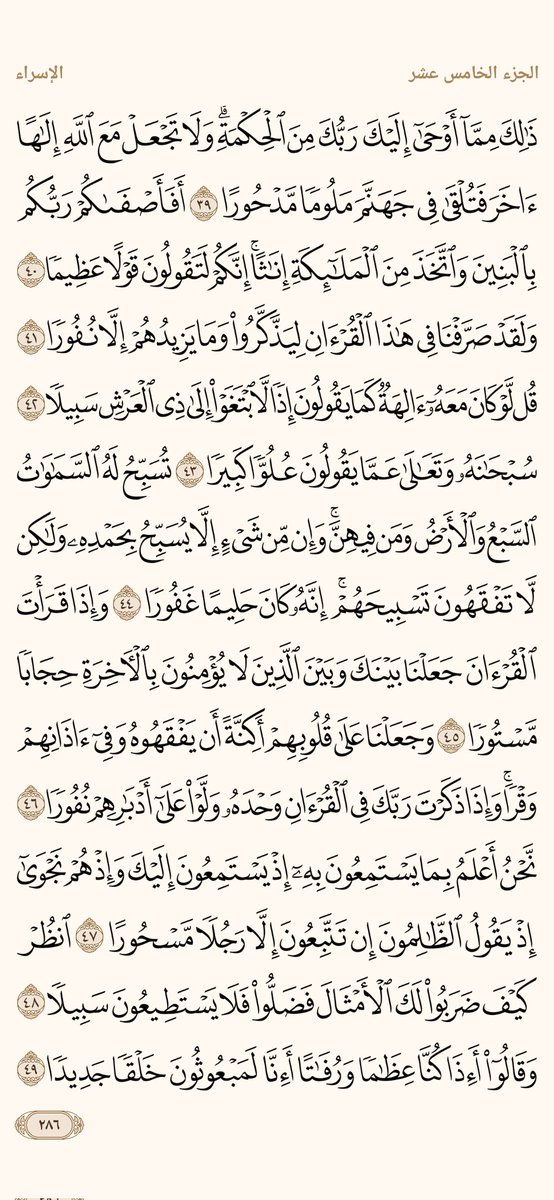 الجزء الخامس عشر
الإسراء
ذَٰلِكَ مِمَّآ أَوۡحَىٰٓ إِلَيۡكَ رَبُّكَ مِنَ ٱلۡحِكۡمَةِۗ وَلَا تَجۡعَلۡ مَعَ ٱللَّهِ إِلَٰهًا
ءَاخَرَ فَتُلۡقَىٰ فِي جَهَنَّمَ مَلُومٗا مَّدۡحُورًا ٣٩ أَفَأَصۡفَىٰكُمۡ رَبُّكُم
بِٱلۡبَنِينَ وَٱتَّخَذَ مِنَ ٱلۡمَلَٰٓئِكَةِ إِنَٰثًاۚ إِنَّكُمۡ لَتَقُولُونَ قَوۡلًا عَظِيمٗا ٤٠
وَلَقَدۡ صَرَّفۡنَا فِي هَٰذَا ٱلۡقُرۡءَانِ لِيَذَّكَّرُواْ وَمَا يَزِيدُهُمۡ إِلَّا نُفُورٗا ٤١
قُل لَّوۡ كَانَ مَعَهُۥٓ ءَالِهَةٞ كَمَا يَقُولُونَ إِذٗا لَّٱبۡتَغَوۡاْ إِلَىٰ ذِي ٱلۡعَرۡشِ سَبِيلٗا ٤٢
سُبۡحَٰنَهُۥ وَتَعَٰلَىٰ عَمَّا يَقُولُونَ عُلُوّٗا كَبِيرٗا ٤٣ تُسَبِّحُ لَهُ ٱلسَّمَٰوَٰتُ
ٱلسَّبۡعُ وَٱلۡأَرۡضُ وَمَن فِيهِنَّۚ وَإِن مِّن شَيۡءٍ إِلَّا يُسَبِّحُ بِحَمۡدِهِۦ وَلَٰكِن
لَّا تَفۡقَهُونَ تَسۡبِيحَهُمۡۚ إِنَّهُۥ كَانَ حَلِيمًا غَفُورٗا ٤٤ وَإِذَا قَرَأۡتَ
ٱلۡقُرۡءَانَ جَعَلۡنَا بَيۡنَكَ وَبَيۡنَ ٱلَّذِينَ لَا يُؤۡمِنُونَ بِٱلۡأٓخِرَةِ حِجَابٗا
مَّسۡتُورٗا ٤٥ وَجَعَلۡنَا عَلَىٰ قُلُوبِهِمۡ أَكِنَّةً أَن يَفۡقَهُوهُ وَفِيٓ ءَاذَانِهِمۡ
وَقۡرٗاۚ وَإِذَا ذَكَرۡتَ رَبَّكَ فِي ٱلۡقُرۡءَانِ وَحۡدَهُۥ وَلَّوۡاْ عَلَىٰٓ أَدۡبَٰرِهِمۡ نُفُورٗا ٤٦
نَّحۡنُ أَعۡلَمُ بِمَا يَسۡتَمِعُونَ بِهِۦٓ إِذۡ يَسۡتَمِعُونَ إِلَيۡكَ وَإِذۡ هُمۡ نَجۡوَىٰٓ
إِذۡ يَقُولُ ٱلظَّٰلِمُونَ إِن تَتَّبِعُونَ إِلَّا رَجُلٗا مَّسۡحُورًا ٤٧ ٱنظُرۡ
كَيۡفَ ضَرَبُواْ لَكَ ٱلۡأَمۡثَالَ فَضَلُّواْ فَلَا يَسۡتَطِيعُونَ سَبِيلٗا ٤٨
وَقَالُوٓاْ أَءِذَا كُنَّا عِظَٰمٗا وَرُفَٰتًا أَءِنَّا لَمَبۡعُوثُونَ خَلۡقٗا جَدِيدٗا ٤٩
٢٨٦